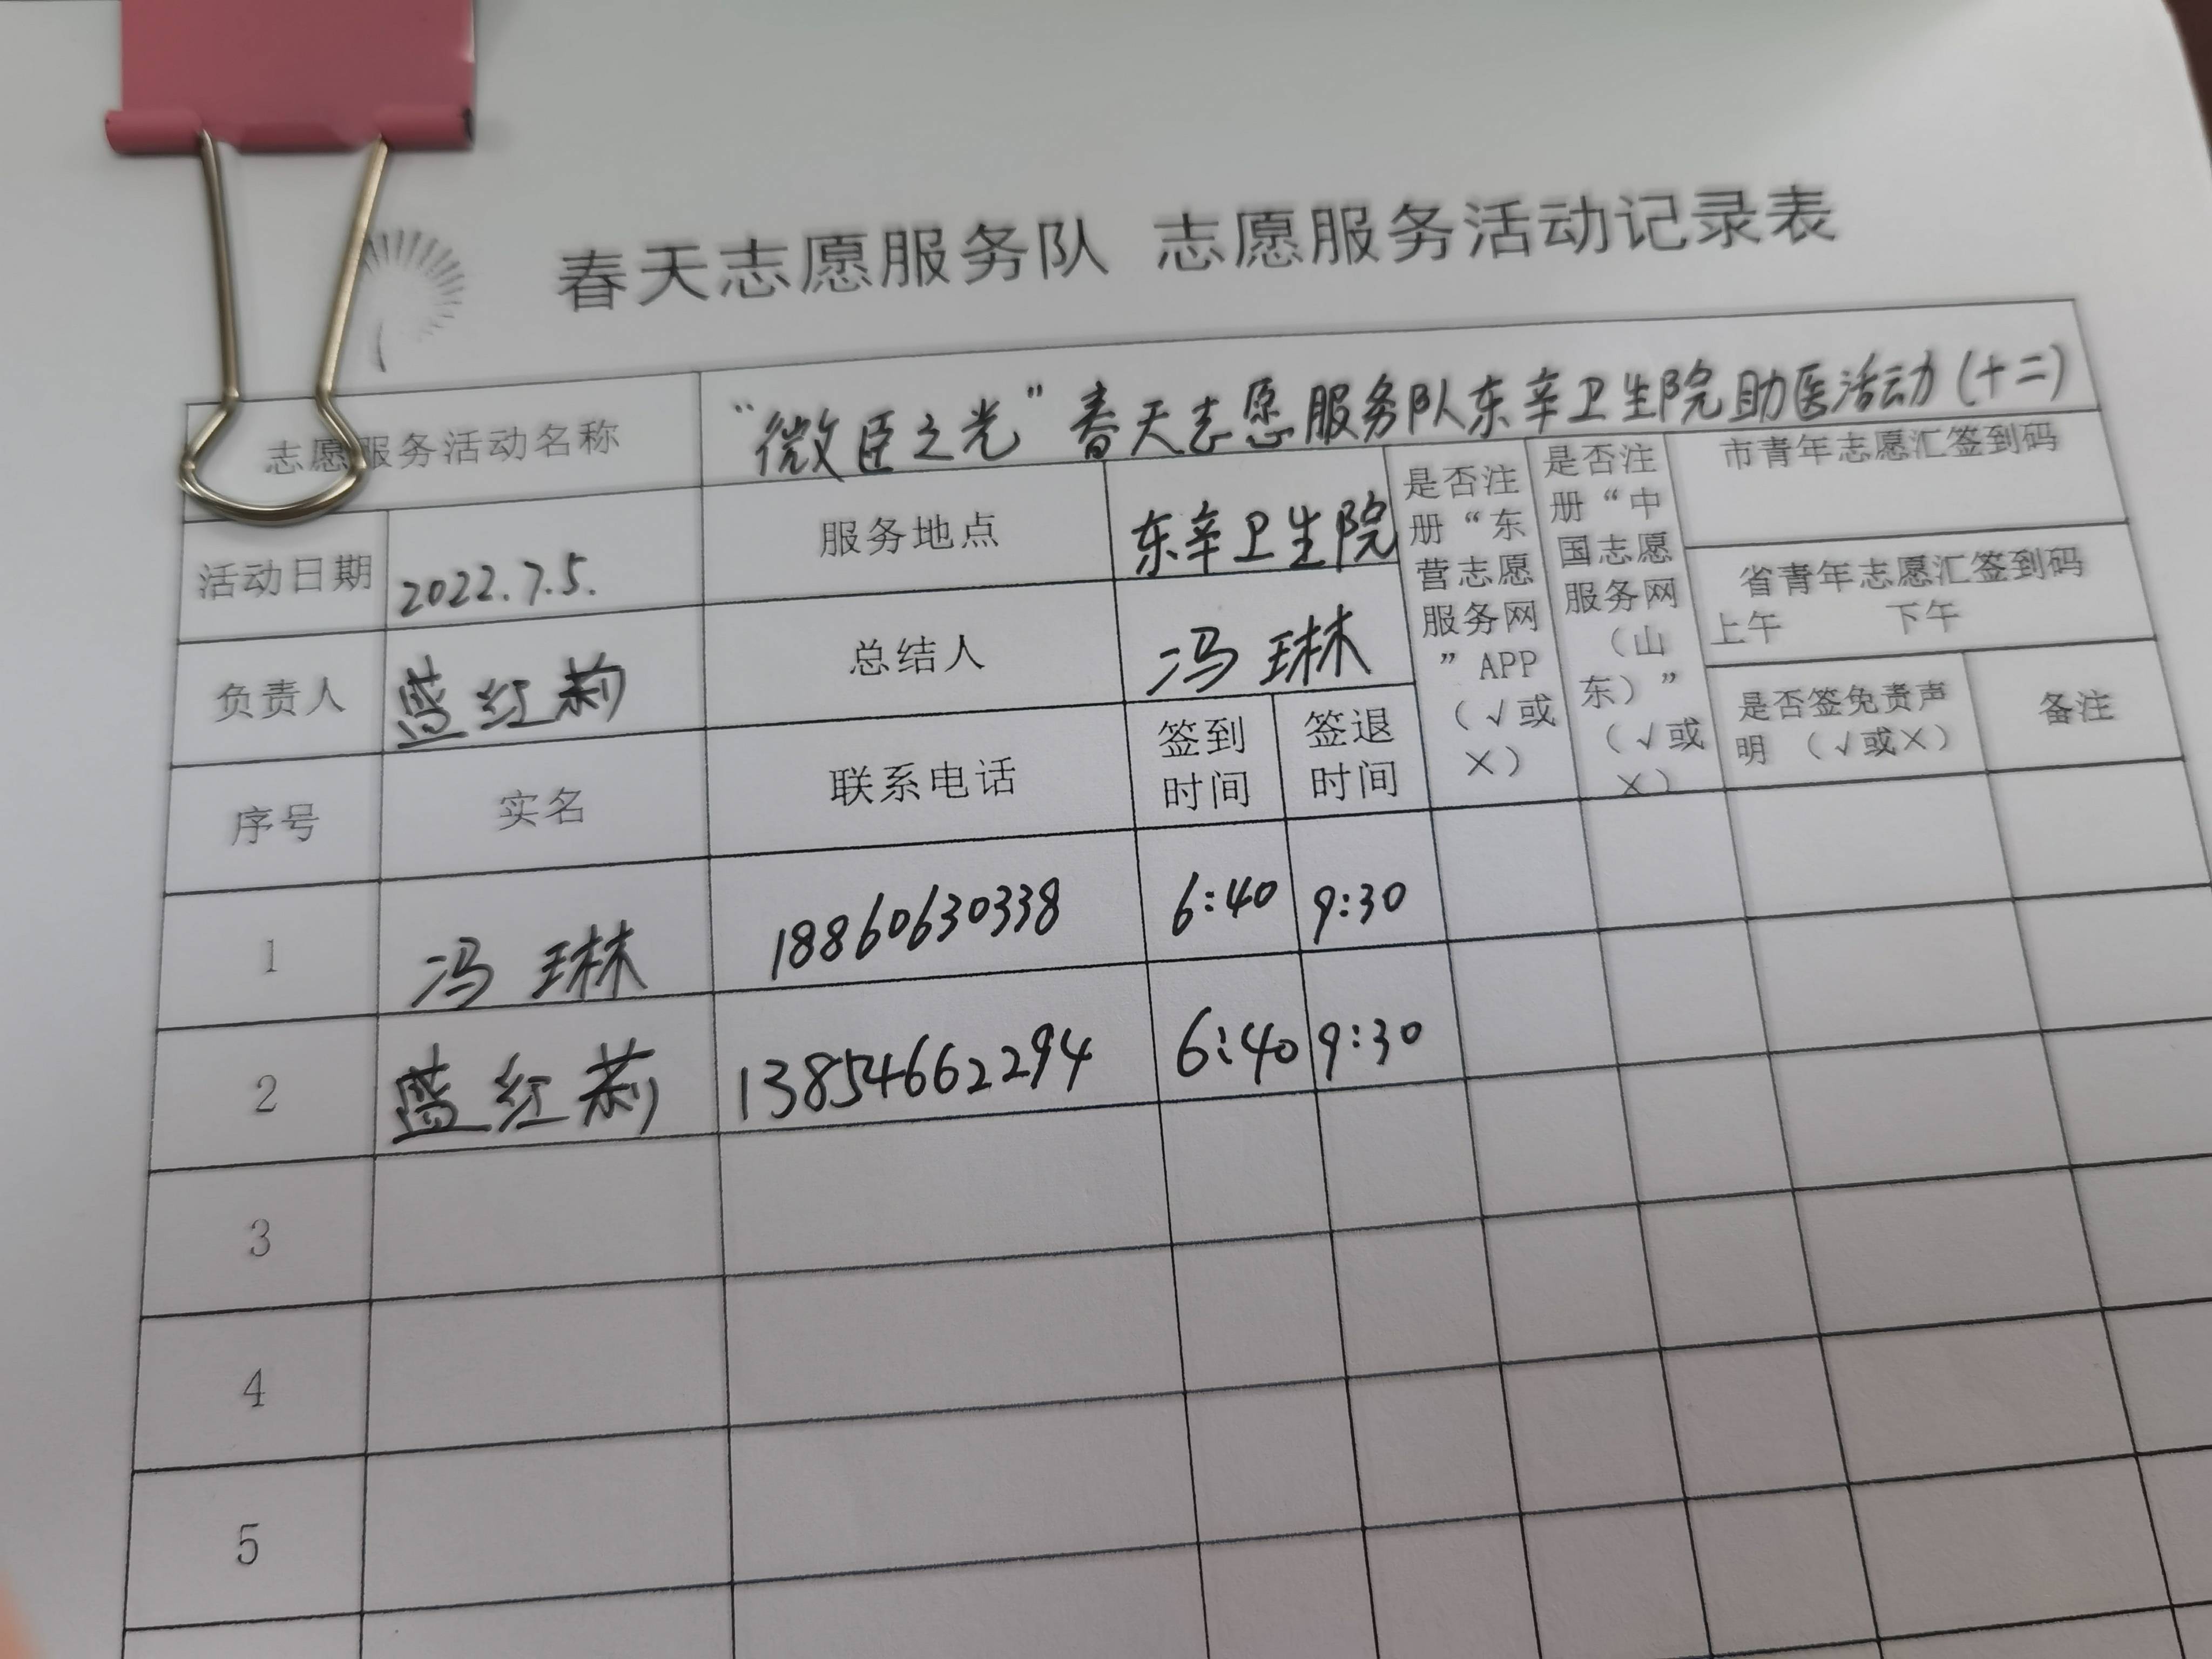 春天志愿服务队 志愿服务活动记录表
志愿服务活动名称 “微臣之光”春天志愿服务队东辛卫生院助医活动(十二)
活动日期 2022.7.5. 服务地点 东辛卫生院
负责人 蓝红莉 总结人 冯琳
是否注
册“东
营志愿
服务网
”APP
(√或
×)
是否注
册“中
国志愿
服务网
(山
东)”
(√或
×)
市青年志愿汇签到码
省青年志愿汇签到码
上午 下午
序号 实名 联系电话
签到
时间
签退
时间
是否签免责声
明 (√或×)
备注
1 冯琳 18860630338 6:40 9:30
2 蓝红莉 13854662294 6:40 9:30
3
4
5